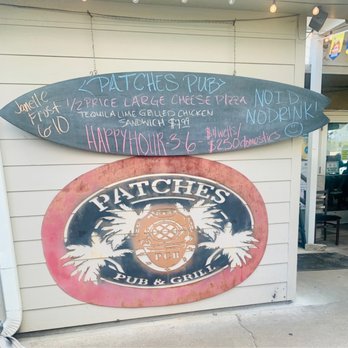 PATCHES PUB
Janelle
Frust
6-10
1/2 PRICE LARGE CHEESE PIZZA
TEQUILA LIME GRILLED CHICKEN
SANDWICH $7.99
HAPPY HOUR 3-6
$4 wells/
$2.50 domestics
NO I.D.
NO DRINK!
PATCHES
PUB
PUB & GRILL